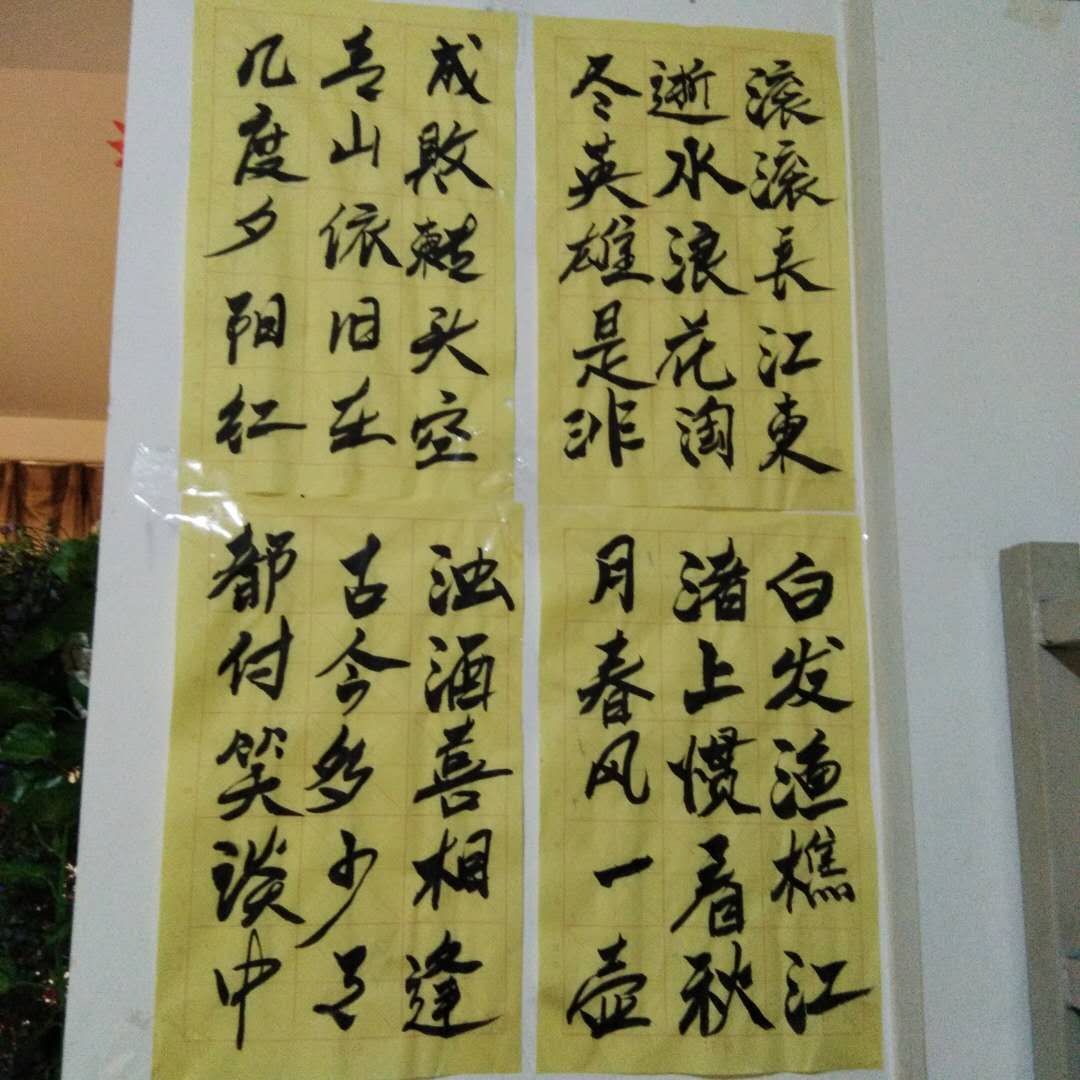 滚滚長江東
逝水浪花淘
尽英雄是非
成敗轉头空
青山依旧在
几度夕阳红
白发渔樵江
渚上惯看秋
月春风一壶
浊酒喜相逢
古今多少事
都付笑谈中